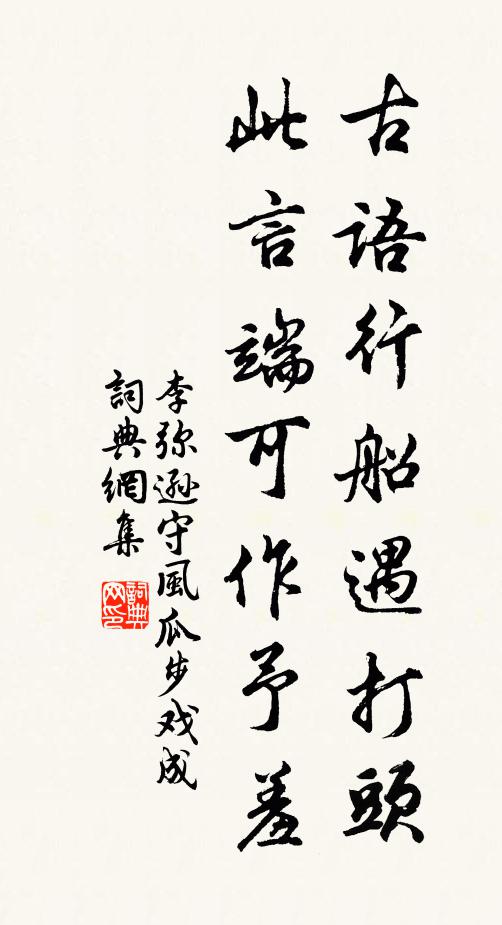 古語行船遇打頭
此言端可作予羞
李弥遜守風瓜步戏成
詞典網集
詞典网印